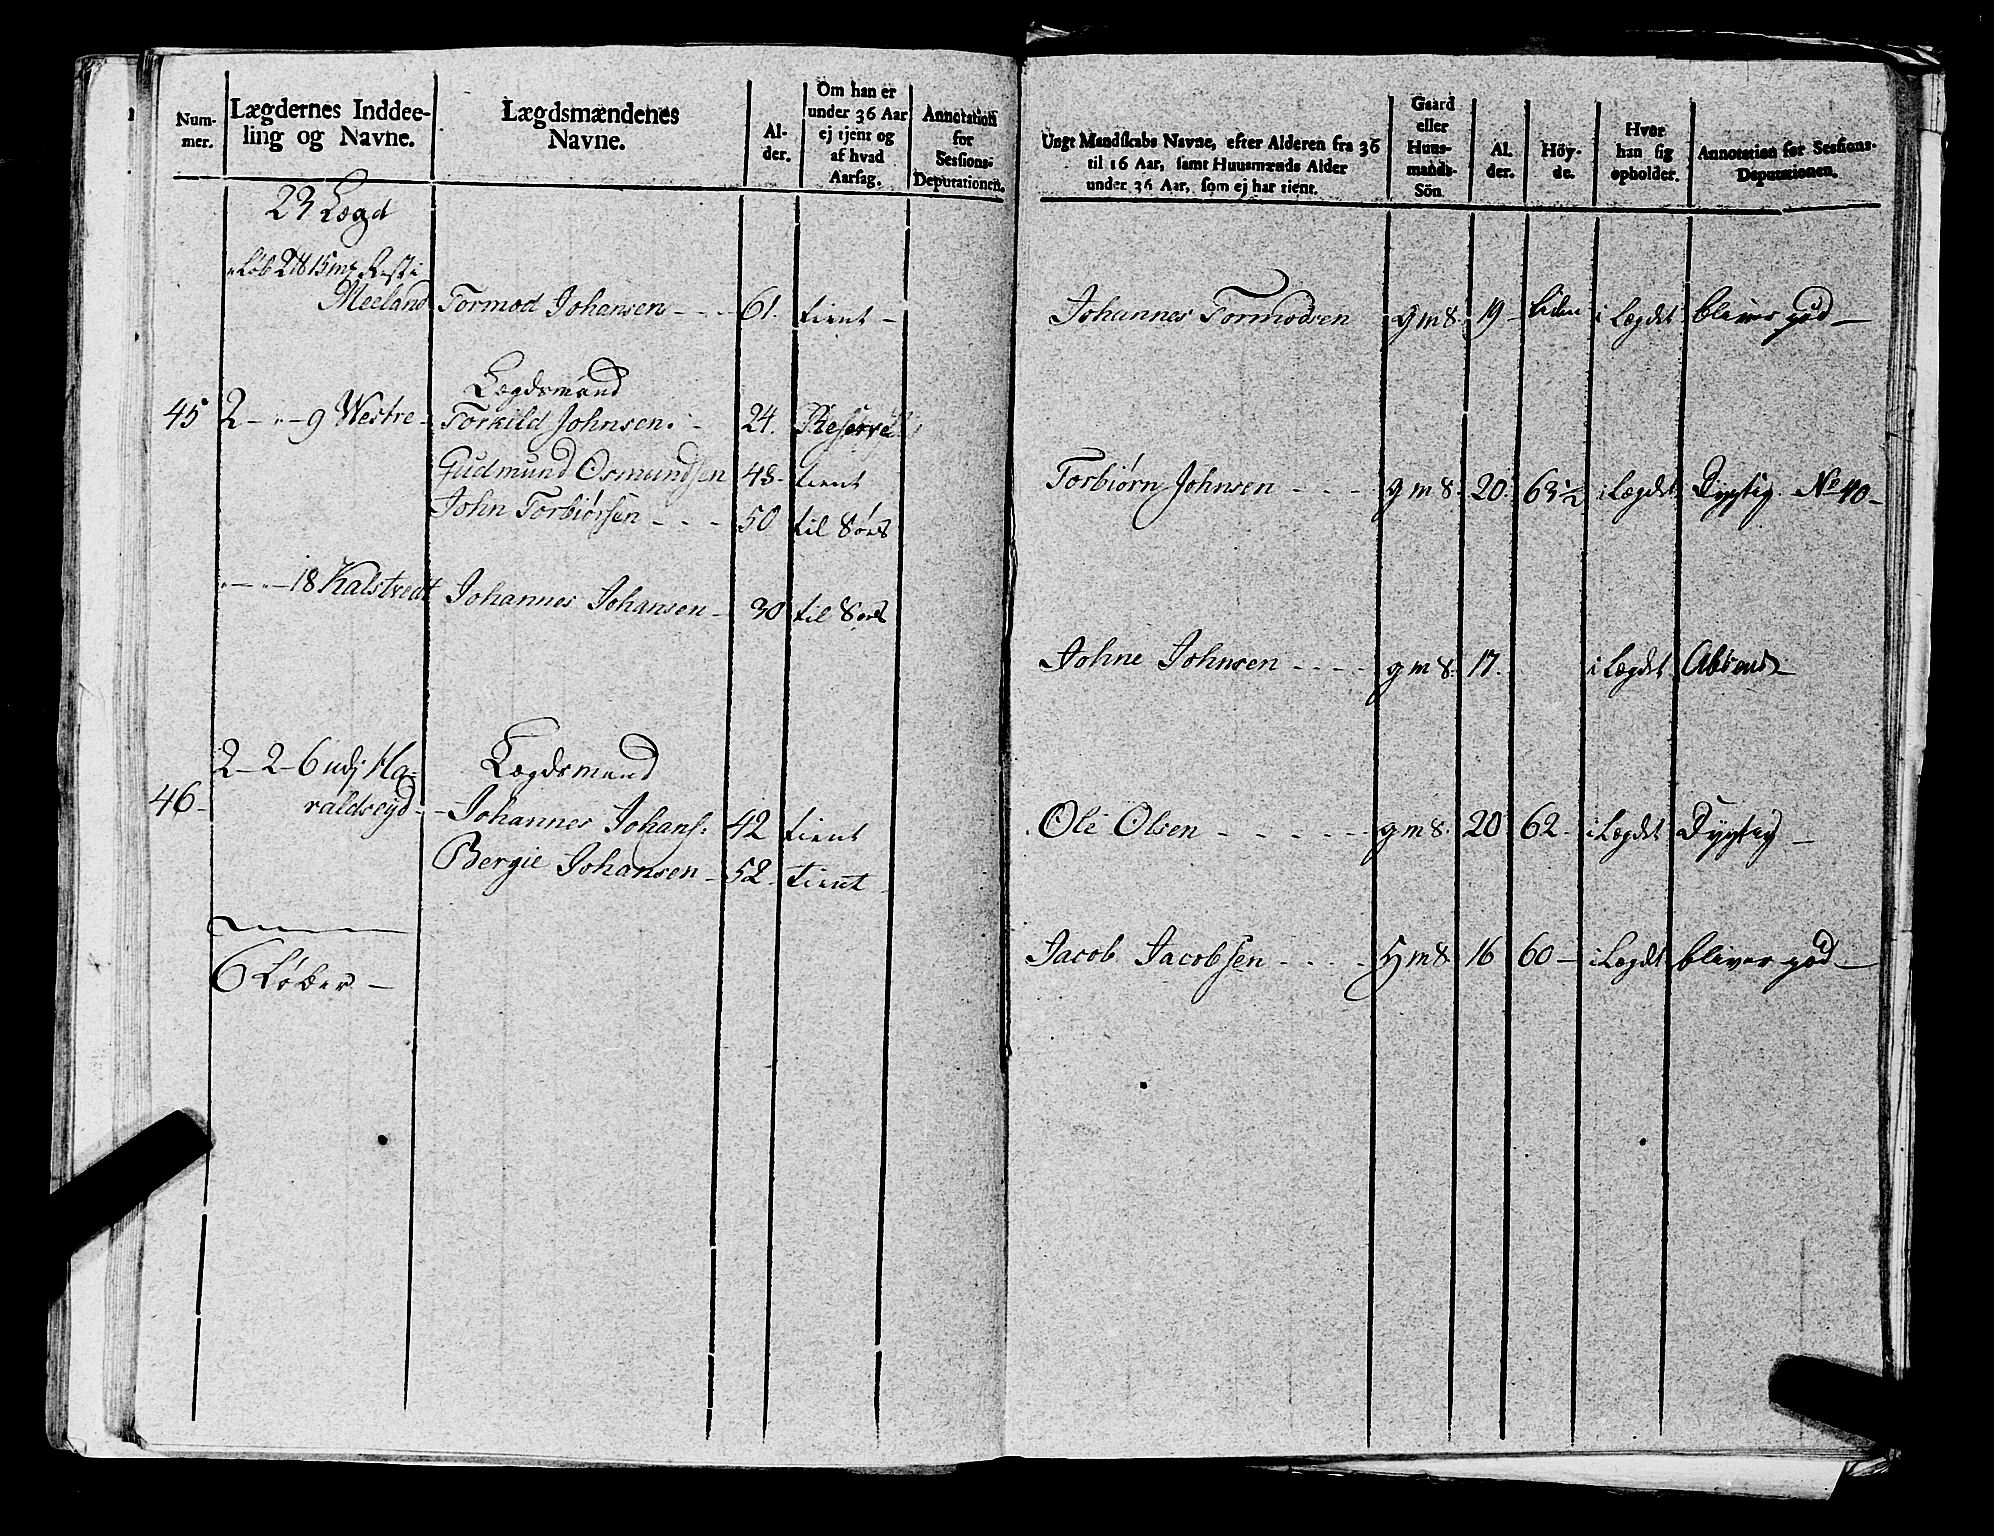 Num-
mer.
Lægdernes Inddee-
ling og Navne.
Lægdsmændenes
Navne.
Al-
der.
Om han er
under 36 Aar
ej tjent og
af hvad
Aarsag.
Annotation
for
Sessions-
Deputationen.
23 Lægd
Meeland Tormod Johansen - - - 61. tient -
Lægdsmand
45 2 - " - 9 Westre - Torkild Johnsen 24. Reserve
Gudmund Osmundsen 48. tient
John Torbiørsen - - - 50 til Søes
" - " - 18 Kalstvedt Johannes Johansen - 30 til Søes
2 - 2 - 6 udj Ha- Lægdsmand
46 - raldseyd - Johannes Johans: 42 tient
Bergie Johansen - 52. tient
6 Løber -
Ungt Mandskabs Navne, efter Alderen fra 36
til 16 Aar, samt Huusmænds Alder
under 36 Aar, som ej har tient.
Gaard
eller
Huus-
mands-
Sön.
Al-
der.
Höy-
de.
Hvor
han sig
opholder.
Annotation for Sessions-
Deputationen.
Johannes Tormodsen g m s. 19 - liden i Lægdet bliver god -
Torbiørn Johnsen - - - g m s. 20. 63½ i Lægdet Dygtig. No 40 -
Johne Johnsen - - - - g m s. 17. i Lægdet Absend -
Ole Olsen - - - - - - g m s. 20 62 - i Lægdet Dygtig -
Jacob Jacobsen - - - - h m s 16 60 - i Lægdet bliver god -